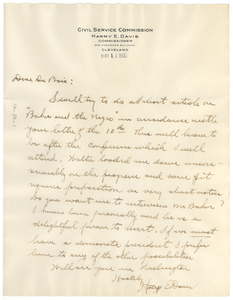 CIVIL SERVICE COMMISSION
HARRY E. DAVIS
COMMISSIONER
CLEVELAND
MAY 11 1932
Dear Du Bois:
I will try to do a short article on
"Baker and the Negro" in accordance with
your letter of the 10th. This will have to
be after the conference which I will
attend. Walter loaded me down
on the program and
preparation on very short notice.
Do you want me to interview Mr Baker?
I know him personally and he is a
delightful person to meet. If we must
have a democratic president I prefer
him to any of the other possibilities.
Will see you in Washington
Harry E Davis